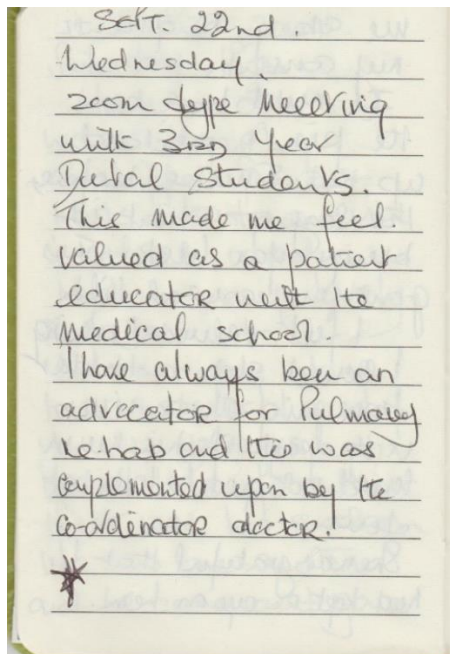 Sept. 22nd.
Wednesday.
zoom type Meeting
with 3RD Year
Students.
This made me feel
valued as a patient
educator with the
medical school.
I have always been an
advocator for Pulmonary
Re-hab and this was
complemented upon by the
co-ordinator doctor.